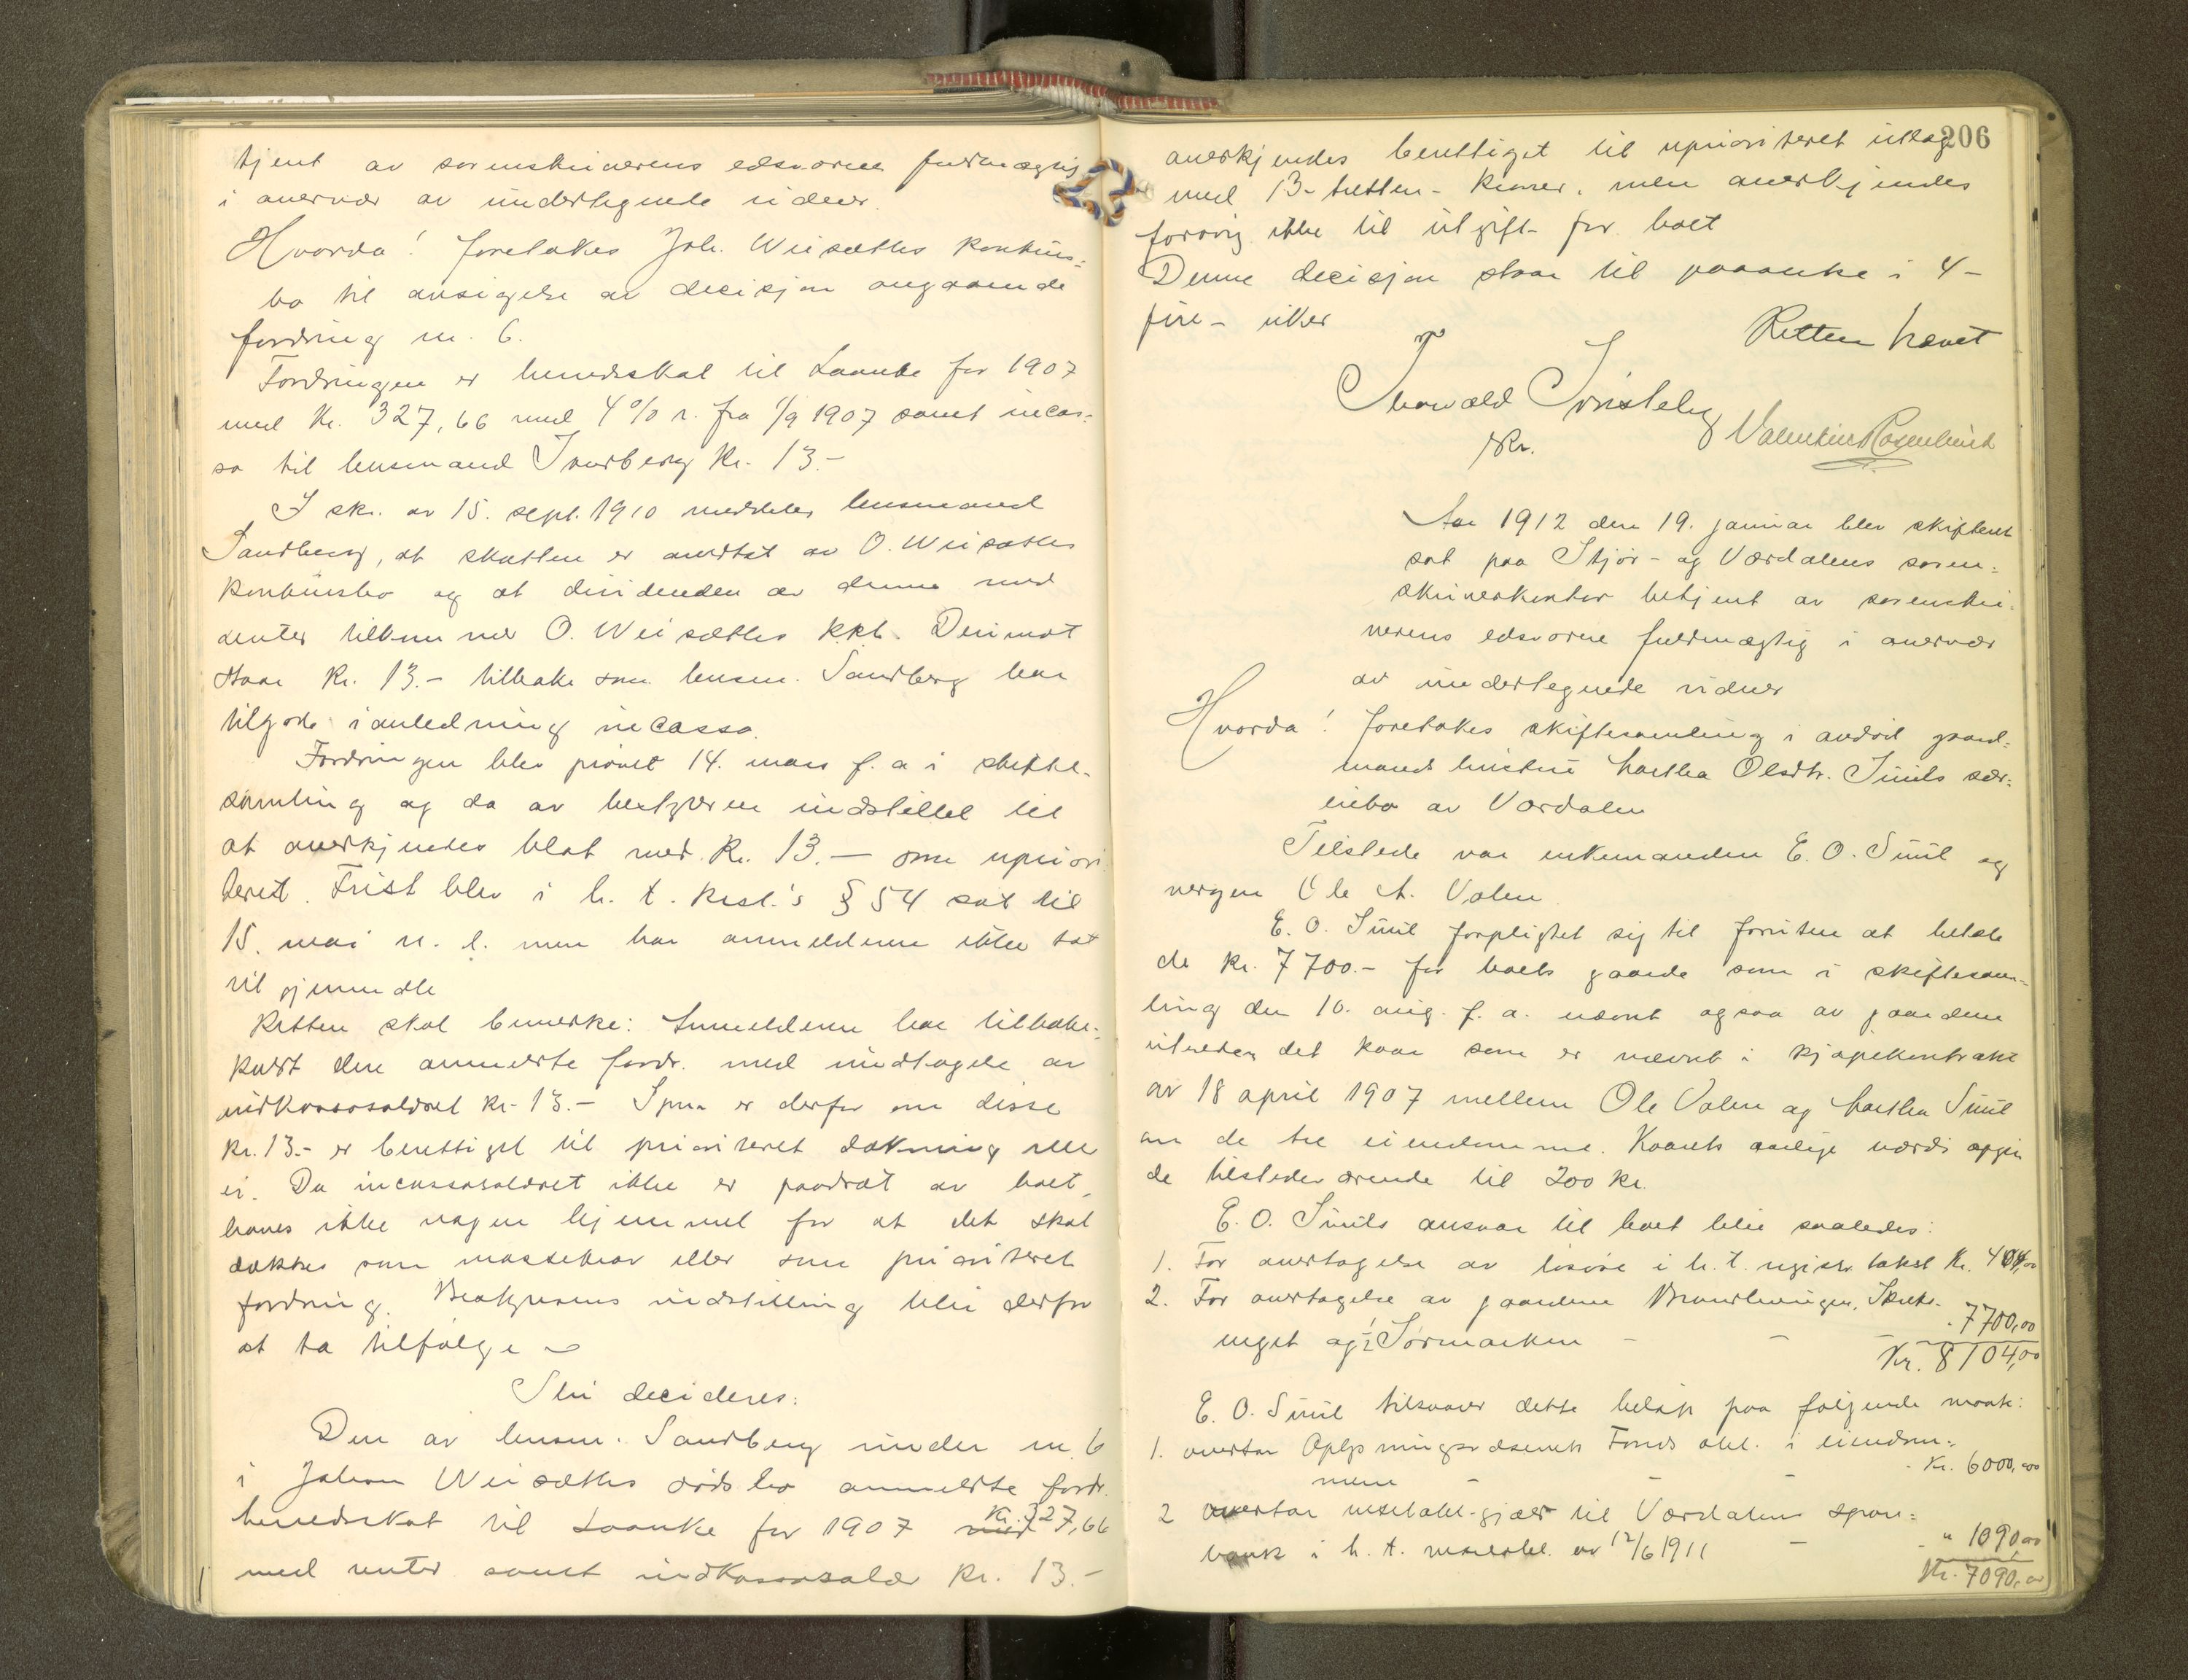 tjent av sorenskriverens edsvorne fuldmægtig
i overvær av undertegnede vidner.
Hvorda! foretokes Joh. Weisæths konkurs-
bo til avsigelse av decisjon angaaende
fordring nr. 6.
Fordringen er herredsskat til Laanke for 1907
med Kr. 327,66 med 4% r. fra 1/9 1907 samt incas-
so til lensmand Sandberg Kr. 13.-
I skr. av 15. sept. 1910 meddeler lensmand
Sandberg, at skatten er overtat av O. Weisæths
konkursbo og at dividenden av denne med
renter tilkommer O. Weisæths kkb. Derimot
staar Kr. 13.- tilbake som lensm. Sandberg har
tilgode i anledning incasso.
Fordringen blev prøvet 14. mars f. a. i skifte-
samling og da av bestyreren indstillet til
at anerkjendes blot med Kr. 13.- som upriori-
teret. Frist blev i h. t. kksl.'s § 54 sat til
15. mai n. l. men har anmelderne ikke tat
til gjenmæle
Retten skal bemerke: Anmelderne har tilbake-
kaldt den anmeldte fordr. med undtagelse av
indkassosaläret Kr. 13.- Spm. er derfor om disse
Kr. 13.- er berettiget til prioriteret dækning eller
ei. Da incassosalæret ikke er paadrat av boet,
haves ikke nogen hjemmel for at det skal
dækkes som massekrav eller som prioriteret
fordring. Bestyrerens indstilling blir derfor
at ta tilfølge
Thi decideres:
Den av lensm. Sandberg under nr. 6
i Johan Weisæths dødsbo anmeldte fordr.
herredsskat til Laanke for 1907 Kr. 327,66
med renter samt indkassosalær Kr. 13.-
206
anerkjendes berettiget til uprioriteret utlæg
med 13- tretten- kroner, men anerkjendes
forøvrig ikke til utgift for boet
Denne decisjon staar til paaanke i 4-
fire- uker
Retten hævet
Thorvald
Kr.
Valentin Rosenlund
Aar 1912 den 19. januar blev skifteret
sat paa Stjør- og Værdalens soren-
skriverkontor betjent av sorenskri-
verens edsvorne fuldmægtig i overvær
av undertegnede vidner
Hvorda! foretokes skiftesamling i avdød gaard-
mands hustru Martha Olsdtr. Suuls sær-
eiebo av Værdalen
Tilstede var enkemanden E. O. Suul og
vergen Ole A. Valen
E. O. Suul forpligtet sig til foruten at betale
de kr. 7700.- for boets gaarde som i skiftesam-
ling den 10. aug. f. a. nævnt ogsaa av gaardene
utrede det kaar som er nævnt i kjøpekontrakt
av 18 april 1907 mellem Ole Valen og Martha Suul
om de tre eiendomme. Kaarets aarlige værdi opgir
de tilstedeværende til 200 kr.
E. O. Suuls ansvar til boet blir saaledes:
1. For overtagelse av løsøre i h. t. registr. takst Kr. 404,00
2. For overtagelse av gaardene
enget og 1/2 Sørmarken - - - 7700,00
Kr. 8104,00
E. O. Suul tilsvarer dette beløp paa følgende maate:
1. overtar Oplysningsvæsenets Fonds obl. i eiendom-
mene - - - Kr. 6000,00
2 overtar vexelobl.-gjæld til Værdalens spare-
bank i h. t. vexelobl. av 12/6 1911 - - " 1090,00
Kr. 7090,00